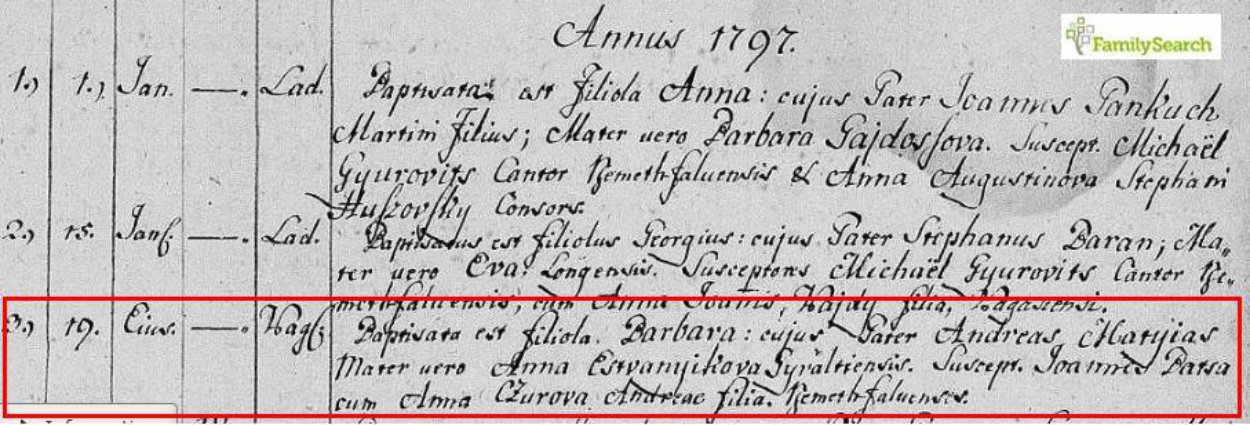 Annus 1797.
FamilySearch
1.) 1.) Jan. —. Lad. Baptisata est filiola Anna: cujus Pater Joannes Pankuch
Martini filius; Mater vero Barbara Gajdossova. Suscept. Michaël
Gyurovits Cantor Nemethfaluensis & Anna Augustinova Stephani
Huszovszky Consors.
2.) 15. Jan. —. Lad. Baptisatus est filiolus Georgius: cujus Pater Stephanus Baran; Ma„
ter vero Eva Longensis. Susceptores Michaël Gyurovits Cantor Ne„
methfaluensis, cum Anna Joannis Hajdu filia,
3.) 19. Eius. —„ Hag. Baptisata est filiola Barbara: cujus Pater Andreas Matyias
Mater vero Anna Estvanyikova Gyraltiensis. Suscept. Joannes Barsa
cum Anna Czurova Andreae filia. Nemethfaluenses.